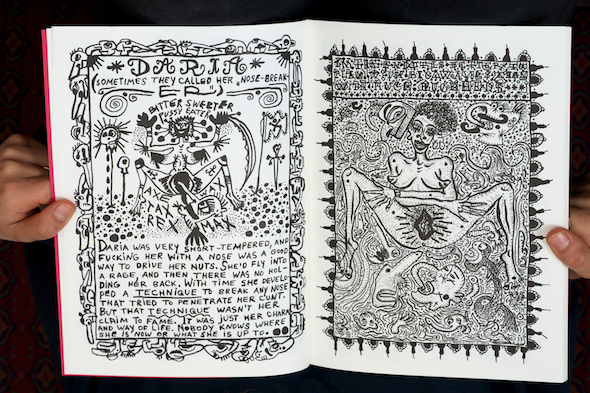 DARIA
(SOMETIMES THEY CALLED HER "NOSE-BREAK-
ER")
BITTER SWEETER
PUSSY EATER
REX MAX
DARIA WAS VERY SHORT-TEMPERED, AND
FUCKING HER WITH A NOSE WAS A GOOD
WAY TO DRIVE HER NUTS. SHE'D FLY INTO
A RAGE, AND THEN THERE WAS NO HOL-
DING HER BACK. WITH TIME SHE DEVELO-
PED A TECHNIQUE TO BREAK ANY NOSE
THAT TRIED TO PENETRATE HER CUNT.
BUT THAT TECHNIQUE WASN'T HER
CLAIM TO FAME. IT WAS JUST HER CHARM
AND WAY OF LIFE. NOBODY KNOWS WHERE
SHE IS NOW OR WHAT SHE IS UP TO.